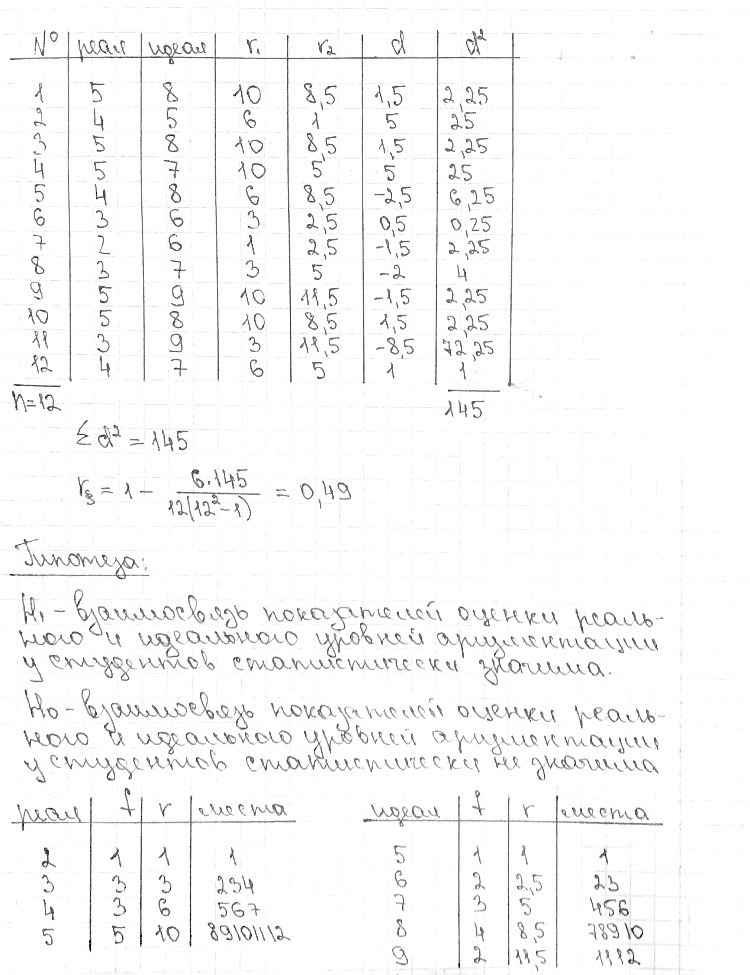 № реал идеал r₁ r₂ d d²
1 5 8 10 8,5 1,5 2,25
2 4 5 6 1 5 25
3 5 8 10 8,5 1,5 2,25
4 5 7 10 5 5 25
5 4 8 6 8,5 -2,5 6,25
6 3 6 3 2,5 0,5 0,25
7 2 6 1 2,5 -1,5 2,25
8 3 7 3 5 -2 4
9 5 9 10 11,5 -1,5 2,25
10 5 8 10 8,5 1,5 2,25
11 3 9 3 11,5 -8,5 72,25
12 4 7 6 5 1 1
n=12 145
Σd² = 145
rs = 1 - 6·145/12(12²-1) = 0,49
Гипотеза:
H₁ - взаимосвязь показателей оценки реаль-
ного и идеального уровней аргументации
у студентов статистически значима.
H₀ - взаимосвязь показателей оценки реаль-
ного и идеального уровней аргументации
у студентов статистически не значима
реал f r места идеал f r места
2 1 1 1 5 1 1 1
3 3 3 234 6 2 2,5 23
4 3 6 567 7 3 5 456
5 5 10 89101112 8 4 8,5 78910
9 2 11,5 1112